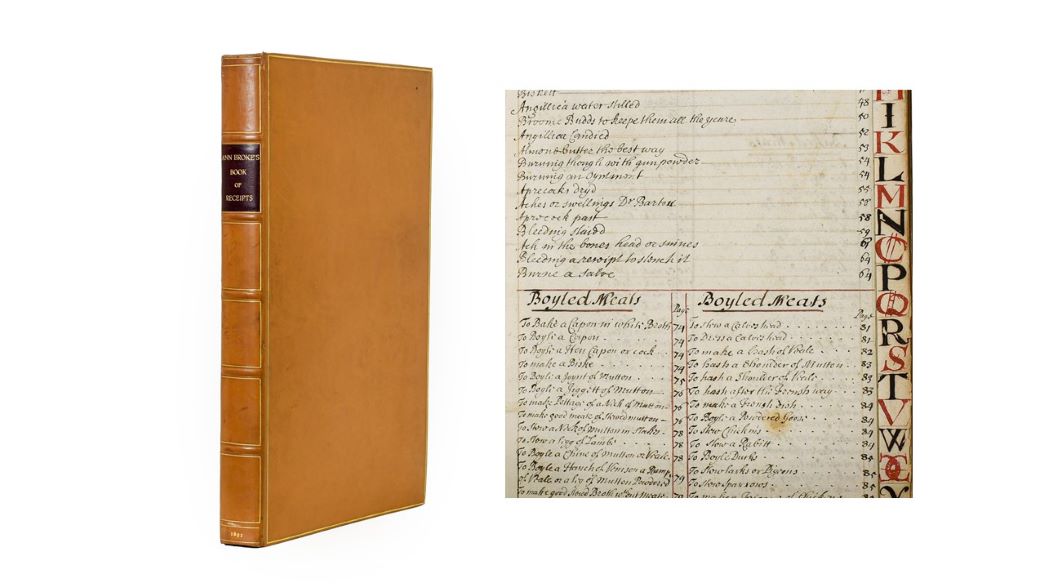 ANN BROKE'S
BOOK
OF
RECEIPTS
Biskett
Angillica water stilled 48
Broome Budds to keepe them all the yeare 50
Angillica Candied 52
Almond butter the best way 53
Burning though with gun powder 54
Burning an Oyntment 54
Aprecocks dryd 55
Aches or swellings Dr
Aprocock past 58
Bleeding 59
Ach in the bones head or sinnes
Bleeding a receipt to stench it 64
Burne a salve 64
Boyled Meats
Page
To Bake a Capon in white Broth 74
To Boyle a Capon 74
To Boyle a Hen Capon or cock 74
To make a Biske 74
To Boyle a Joynt of Mutton 75
To Boyle a Jiggett of Mutton 76
To make Pottage of a Neck of Mutton 76
To make good meate of stewed mutton 76
To Stew a Neck of Mutton in stakes 78
To Stew a leg of Lambe 78
To Boyle a Chine of Mutton or Veale 78
To Boyle a Haunch of Venison a Rump
of Veale or a leg of Mutton Powdered 79
To make good stewed Broth
Boyled Meats
Page
To stew a Calves head 81
To Dress a Calves head 81
To make a hash of Veale 82
To hash a Shoulder of Mutton 83
To hash a Shoulder of Veale 83
To hash after the French way 83
To make a French dish 84
To Boyle a Powdered Goose 84
To Stew Chickins 84
To Stew a Rabitt 84
To Boyle Ducks 84
To Stew larks or Pigeons 85
To Stew Sparrows 85
H
I
K
L
M
N
O
P
Q
R
S
T
V
W
Y